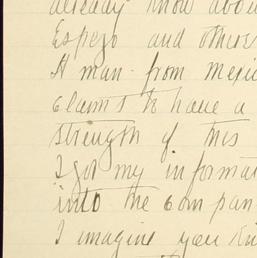 already know abou
Espejo and others
A man from Mexic
claims to have a
strength of this
I got my informat
into the com pan
I imagine you kn